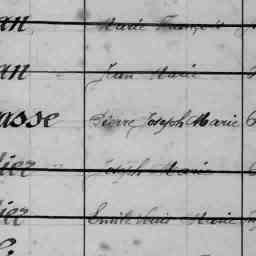 an Marie François
an Jean Marie
asse Pierre Joseph Marie
lier Joseph Marie
ier Emile Louis Marie